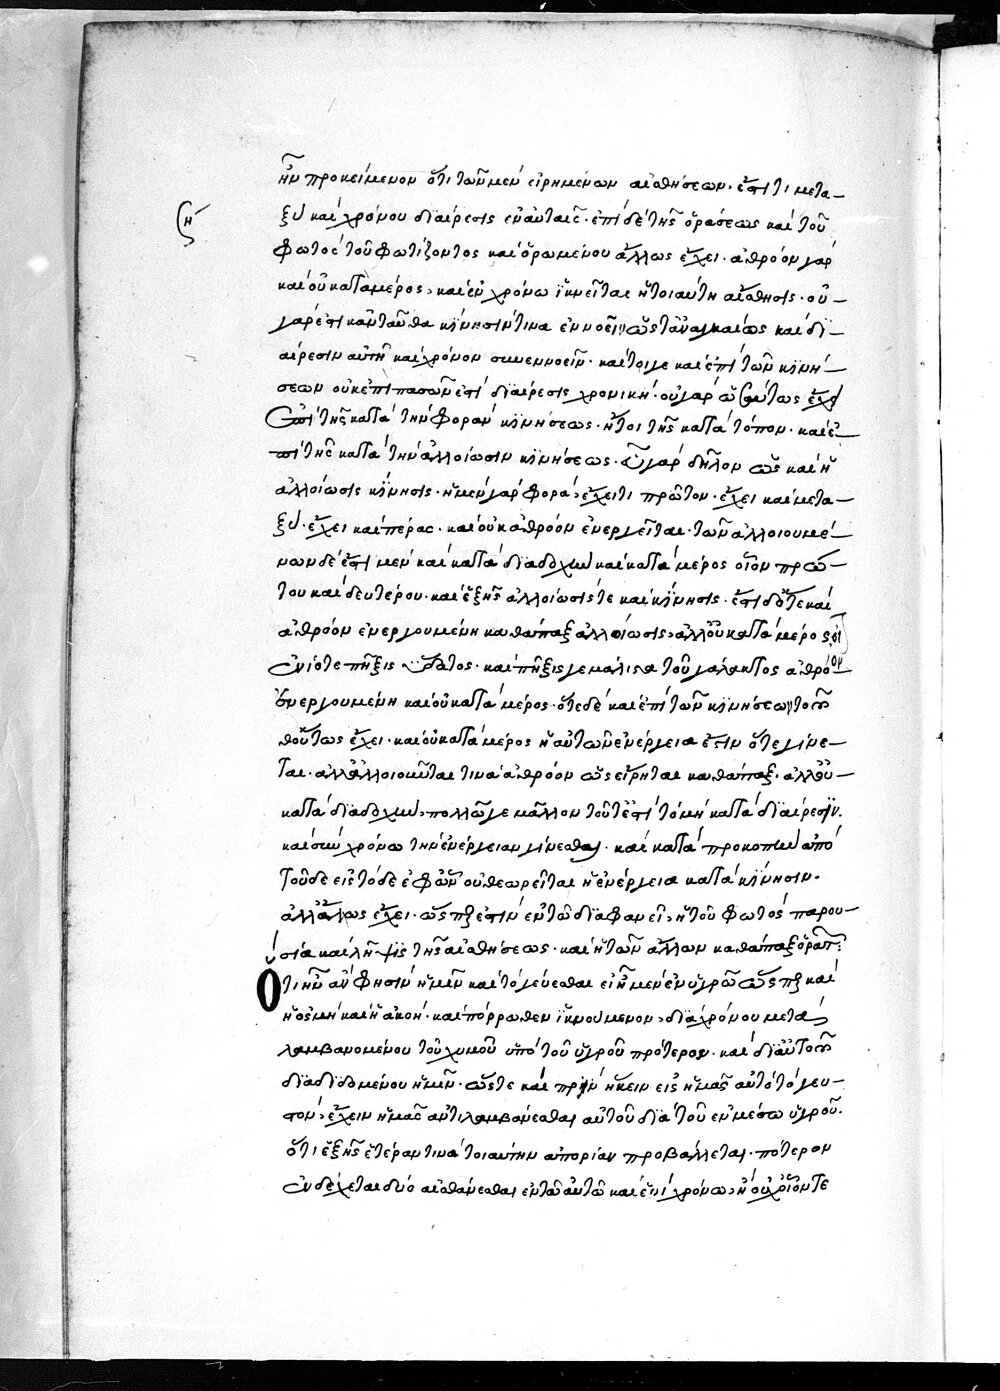 ἦν προκείμενον ὅτι τῶν μὲν εἰρημένων αἰσθήσεων· ἔστί τι μετα-
ξὺ καὶ χρόνου διαίρεσις ἐν αὐταῖς· ἐπὶ δὲ τῆς ὁράσεως καὶ τοῦ
φωτὸς τοῦ φωτίζοντος καὶ ὁρωμένου ἄλλως ἔχει· ἀθρόον γὰρ
καὶ οὐ κατὰ μέρος, καὶ ἐν χρόνω ἱκνεῖται ἡ τοιαύτη αἴσθησις· οὐ-
γὰρ ἔστι κἀνταῦθα κίνησίν τινα ἐννοεῖν ὥστ' ἀναγκαίως καὶ δι-
αίρεσιν αὐτῇ καὶ χρόνον συνεννοεῖν· καίτοιγε καὶ ἐπὶ τῶν κινή-
σεων οὐκ ἐπὶ πασῶν ἐστὶ διαίρεσις χρονική· οὐ γὰρ ὡσαύτως ἔχει
ἐπὶ τῆς κατὰ τὴν φορὰν κινήσεως· ἤτοι τῆς κατὰ τόπον· καὶ ἐ-
πὶ τῆς κατὰ τὴν ἀλλοίωσιν κινήσεως· γὰρ δῆλον ὡς καὶ ἡ
ἀλλοίωσις κίνησις· ἡ μὲν γὰρ φορὰ, ἔχει τι πρῶτον· ἔχει καὶ μετα-
ξύ· ἔχει καὶ πέρας· καὶ οὐκ ἀθρόον ἐνεργεῖται· τῶν ἀλλοιουμέ-
νων δὲ ἔστι μὲν καὶ κατὰ διαδοχὴν καὶ κατὰ μέρος οἷον πρώ-
του καὶ δευτέρου· καὶ ἑξῆς ἀλλοίωσίς τε καὶ κίνησις· ἔστι δ' ὅτε καὶ
ἀθρόον ἐνεργουμένη καθάπαξ ἀλλοίωσις, ἀλλ' οὐ κατὰ μέρος
ἐνίοτε πῆξις ὕδατος· καὶ πῆξίς γε μάλιστα τοῦ γάλακτος ἀθρόον
ἐνεργουμένη καὶ οὐ κατὰ μέρος· ὅτε δὲ καὶ ἐπὶ τῶν κινήσεων τοῦ-
θ' οὕτως ἔχει· καὶ οὐ κατὰ μέρος ἡ αὐτῶν ἐνέργεια ἔστιν ὅτε γίνε-
ται· ἀλλ' ἀλλοιοῦταί τινα ἀθρόον ὡς εἴρηται καθάπαξ· ἀλλ' οὐ-
κατὰ διαδοχὴν, πολλῶ γε μᾶλλον τοῦτ' ἔστι τὸ μὴ κατὰ διαίρεσιν.
καὶ σὺν χρόνω τὴν ἐνέργειαν γίνεσθαι· καὶ κατὰ προκοπὴν ἀπὸ
τοῦδε εἰς τόδε ἐφ' ὧν οὐ θεωρεῖται ἡ ἐνέργεια κατὰ κίνησιν·
ἀλλ' ἄλλως ἔχει· ὥσπερ ἐστὶν ἐν τῶ διαφανεῖ, ἡ τοῦ φωτὸς παρου-
σία καὶ λῆψις τῆς αἰσθήσεως· καὶ ἡ τῶν ἄλλων καθάπαξ
Ὅτι ἦν ἂν φησὶν ἡμῖν καὶ τὸ γεύεσθαι εἰ ἦμεν ἐν ὑγρῶ ὥσπερ καὶ
ἡ ὀσμὴ καὶ ἡ ἀκοή· καὶ πόρρωθεν ἱκνούμενον, διὰ χρόνου μετα-
λαμβανομένου τοῦ χυμοῦ ὑπὸ τοῦ ὑγροῦ πρότερον· καὶ δι' αὐτοῦ
διαδιδομένου ἡμῖν· ὥστε καὶ πρὶν ἥκειν εἰς ἡμᾶς αὐτὸ τὸ γευ-
στὸν, ἔχειν ἡμᾶς ἀντιλαμβάνεσθαι αὐτοῦ διὰ τοῦ ἐν μέσω ὑγροῦ.
ὅτι ἑξῆς ἑτέραν τινὰ τοιαύτην ἀπορίαν προβάλλεται· πότερον
ἐνδέχεται δύο αἰσθάνεσθαι ἐν τῶ αὐτῶ καὶ ἑνὶ χρόνω, ἢ οὐχ οἷόν τε